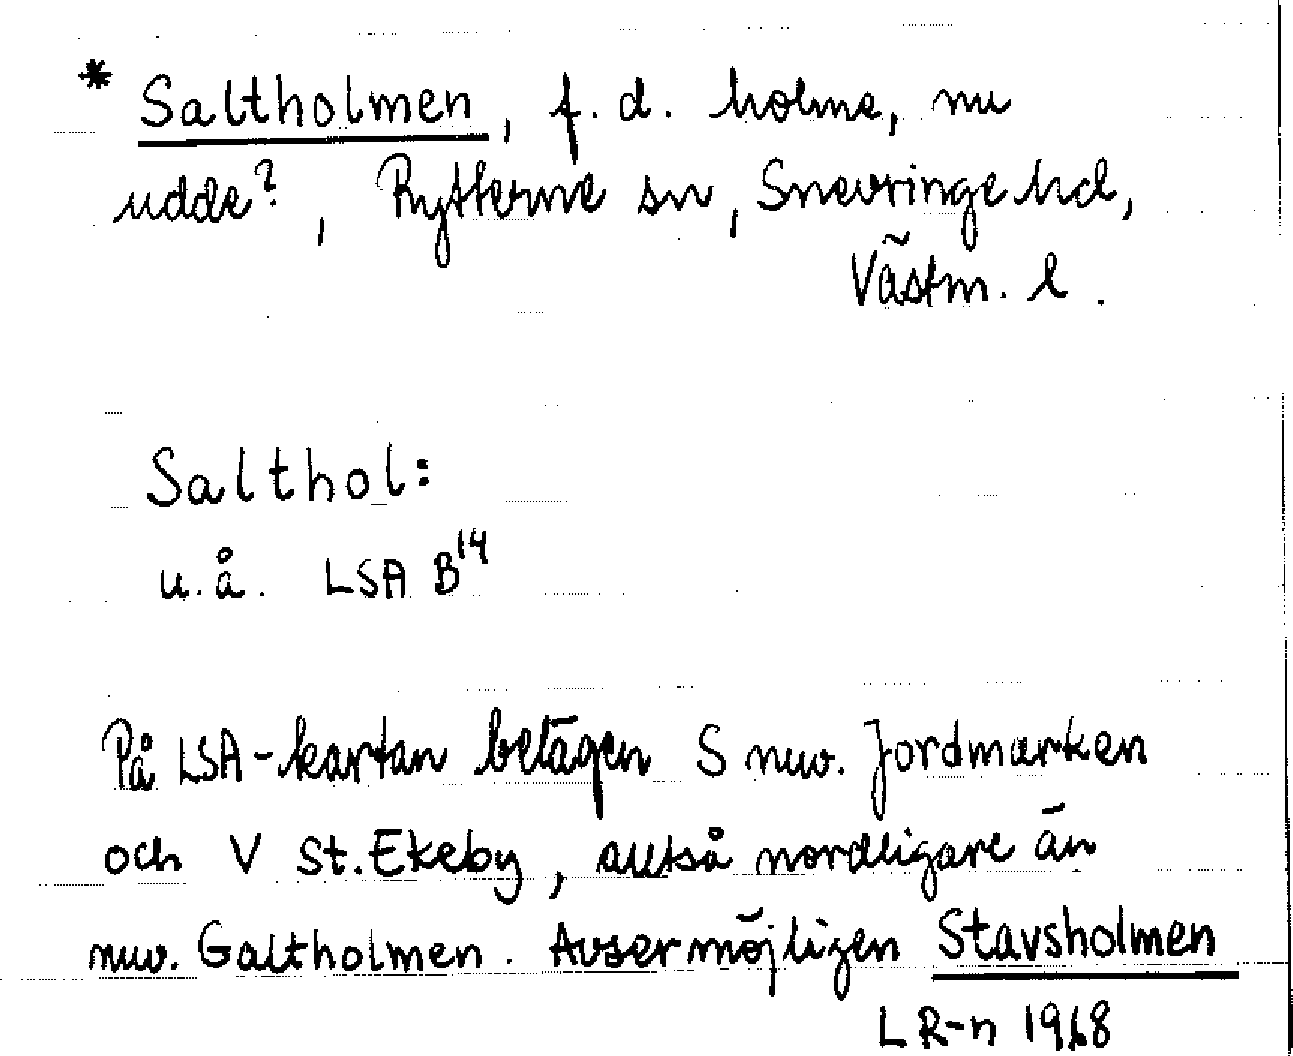 * Saltholmen, f.d. holme, nu
udde?, Rytterne sn, Snevringe hd,
Västm. l.
Salthol:
u.å. LSA B14
På LSA-kartan belägen S nuv. Jordmarken
och V St. Ekeby, alltså nordligare än
nuv. Galtholmen. Avser möjligen Stavsholmen
L R-n 1968